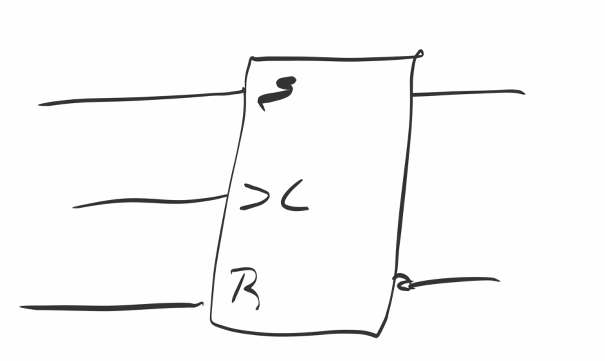 S
>C
R